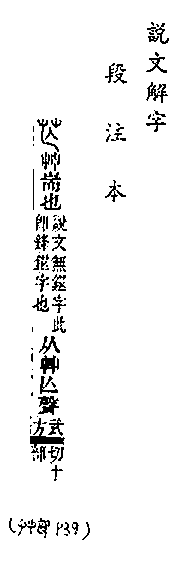 說文解字
段注本
芒艸耑也說文無鋩字此即鋒鋩字也从艸亾聲武方切十部
(艸部 P39)